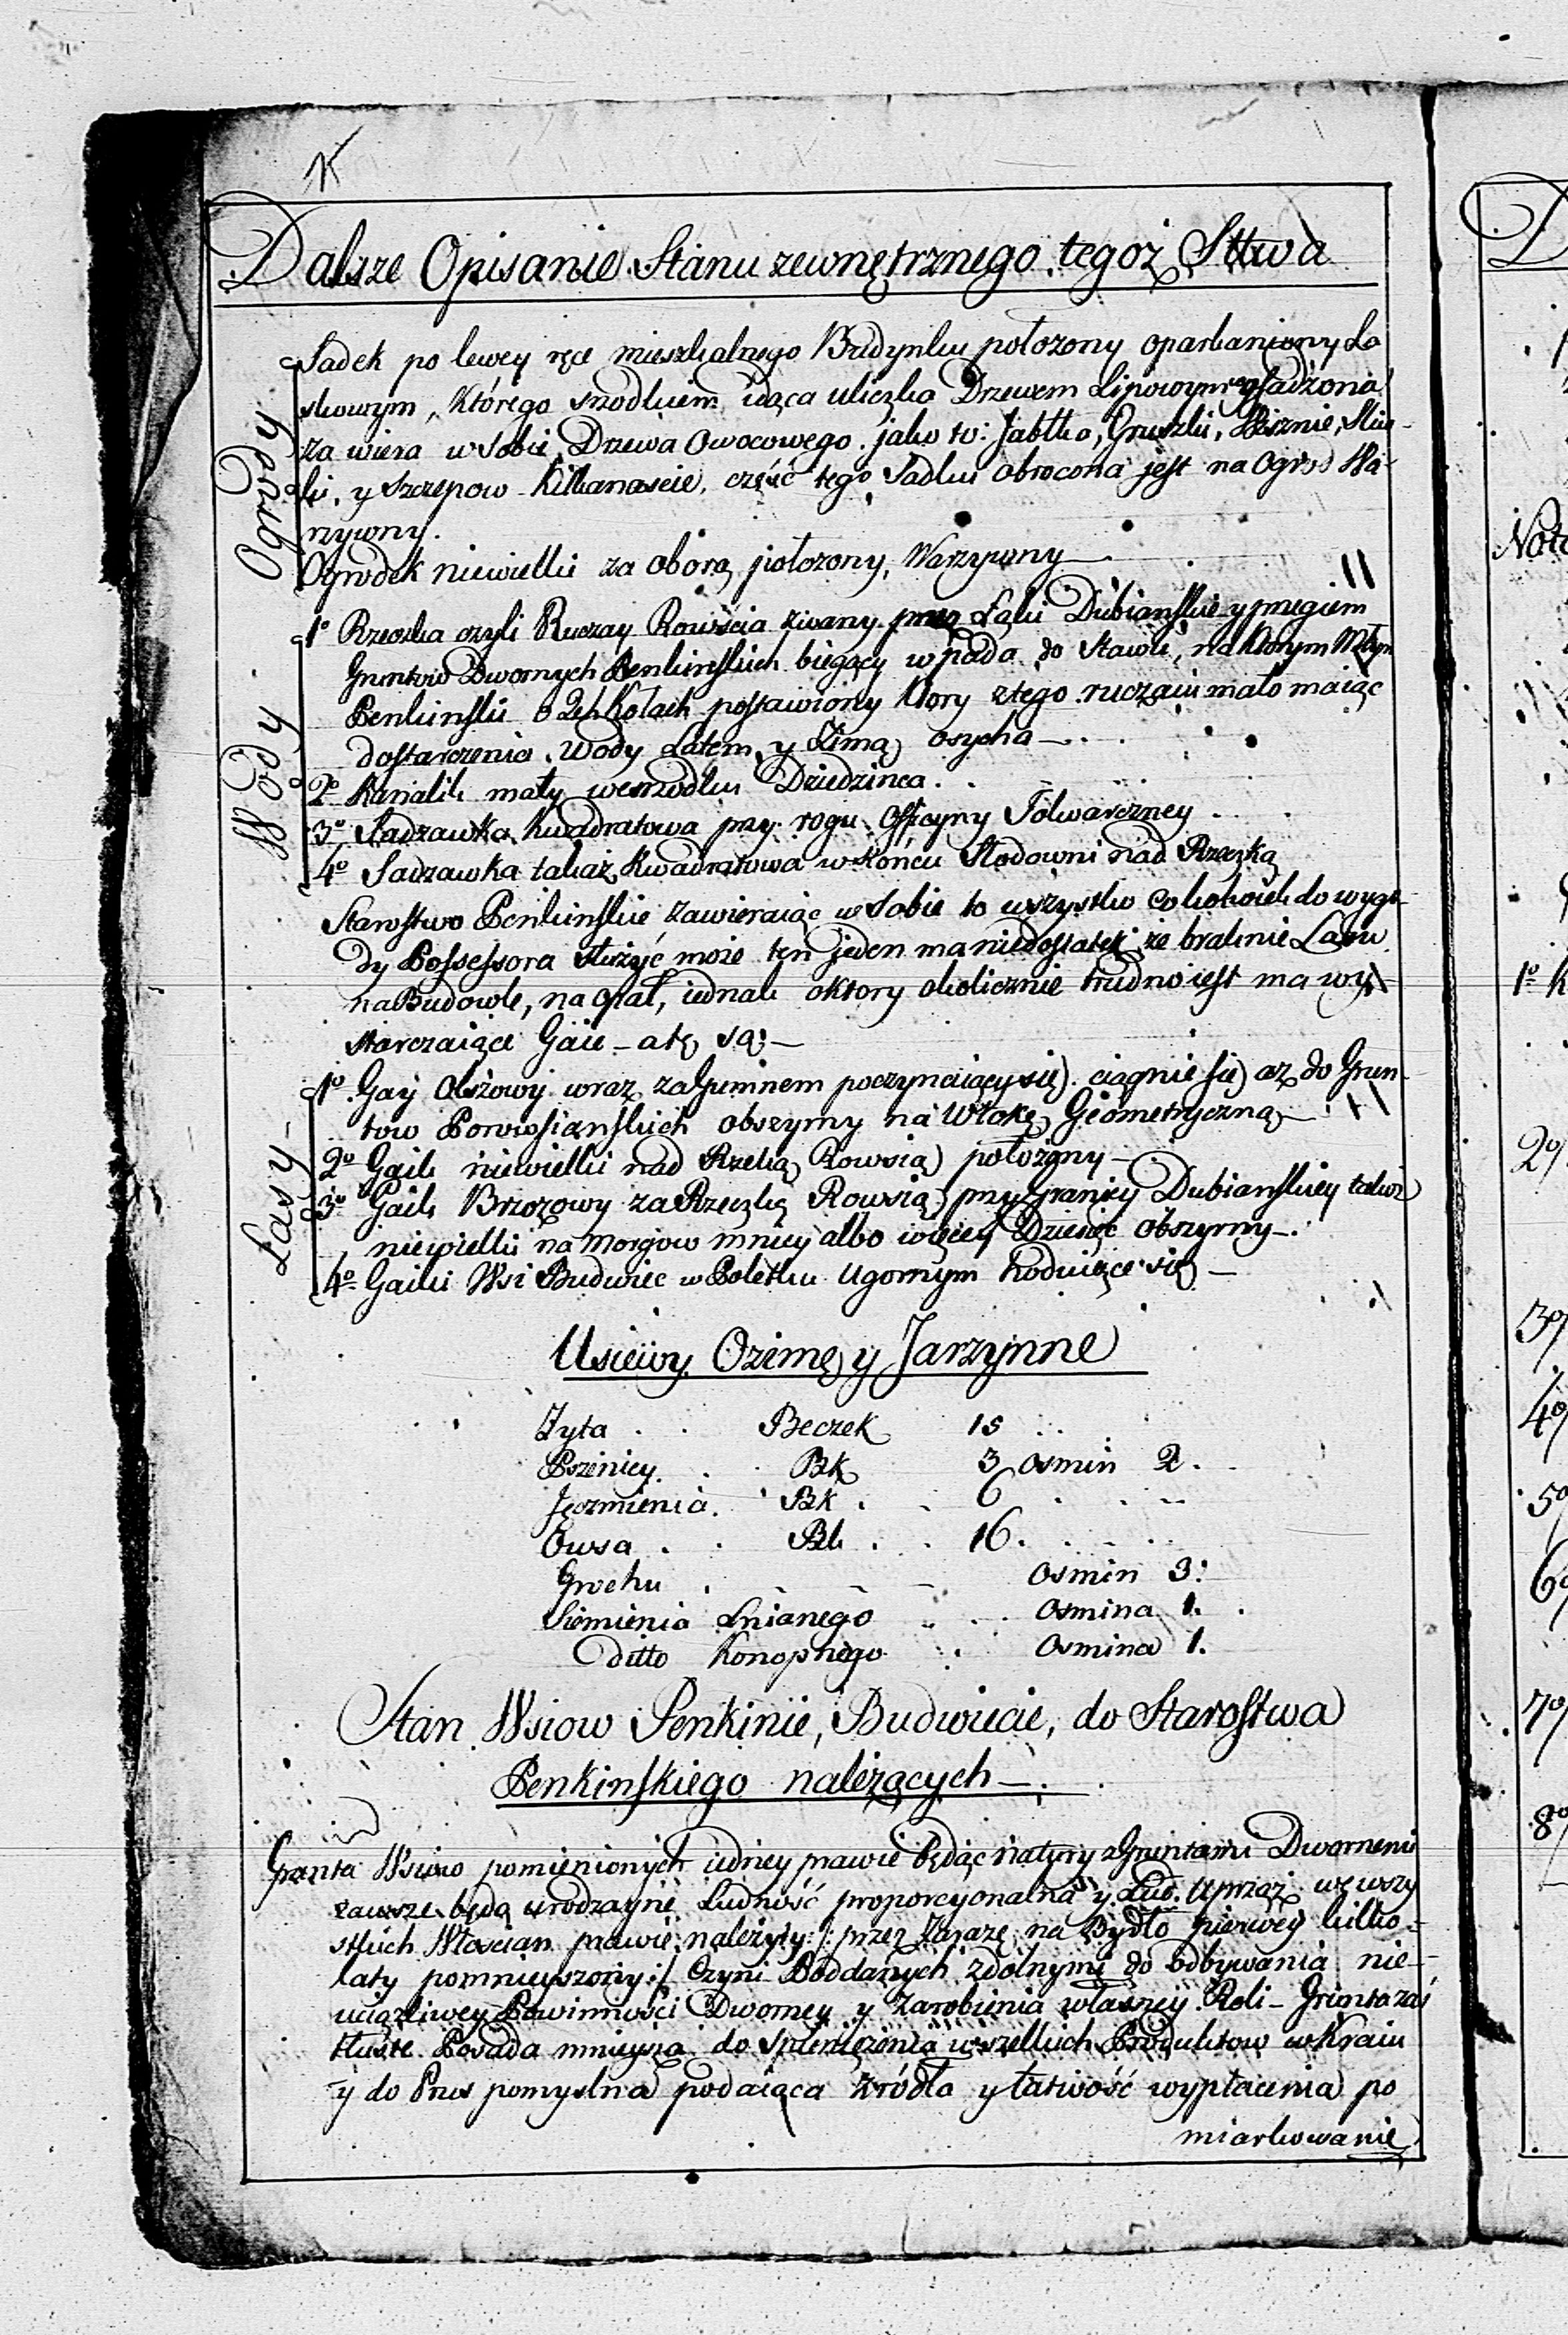 K
Dalsze Opisanie Stanu zewnętrznego tegoż Sttwa
Ogrody
Sadek po lewey ręce mieszkalnego Budynku położony oparkaniony La
skowym, którego srodkiem idąca uliczka Drzewem Lipowym wysadzona
za wiera w Sobie Drzewa Owocowego jako to: Jabłka, Gruszki, Wisznie, Sliw-
ki, y Szczepow Kilkanascie, część tego Sadku obrocona jest na Ogrod Wa-
rzywny.
Ogrodek niewielki za oborą położony, Warzywny —
Wody
1º Rzeczka czyli Ruczay Rowścia zwany przez Łąki Dubianskie y przegiem
Gruntow Dwornych Penkinskich biegący wpada do Stawu, na ktorym Młyn
Penkinski o 2ch Kołach postawiony ktory z tego ruczaiu mało maiąc
dostarczenia Wody Latem y Zimą osycha —
2º Kanalik mały wesrzodku Dziedzinca.
3º Sadzawka kwadratowa przy rogu Officyny Folwarczney
4º Sadzawka takaż Kwadratowa w Końcu Słodowni nad Rzeczką
Starostwo Penkinskie zawieraiąc w Sobie to wszystko cokolwiek do wygo-
dy Possessora służyć może ten jeden ma niedostatek że braknie Lasu
na Budowle, na opał, iednak o ktory okolicznie trudno iest ma wy-
starczaiące Gaie — a te są: —
Lasy —
1º Gay Olszowy wraz za Gumnem poczynaiący się ciągnie się aż do Grun-
tow Powiosianskich obszyrny na Włokę Geometryczną —
2º Gaik niewielki nad Rzeką Rowsią położony —
3º Gaik Brzozowy za Rzeczką Rowsią przy Granicy Dubianskiey takoż
niewielki na Morgow mniey albo więcey Dziesięć obszyrny —.
4º Gaiki Wsi Budwiec w Poletku Ugornym hoduiące się —
Usiewy Ozime y Jarzynne
Zyta . . Beczek 15
Pszenicy . Bk 3 Osmin 2.
Jęczmienia. Bk . . 6
Owsa . . Bk . . 16.
Grochu . Osmin 3.
Siemienia Lnianego Osmina 1.
ditto Konopnego Osmina 1.
Stan Wsiow Penkinie, Budwiecie, do Starostwa
Penkinskiego należących —.
Grunta Wsiow pomienionych iedney prawie będąc natury z Gruntami Dwornemi
zawsze będą urodzayne Ludność proporcyonalna y Lud. Uprząż we wszy
stkich Włoscian prawie należyty :/ przez Zarazę na Bydło pierwey kilko-
laty pomnieyszony :/ Czyni Poddanych zdolnymi do odbywania nie-
uciążliwey Powinności Dworney y zarobienia własney Roli — Grunta zaś
tłuste Posada mnieysza do Spieniężenia wszelkich Produktow w Kraiu
y do Prus pomyslna podaiąca źródło y łatwość wypłacenia po
miarkowanie